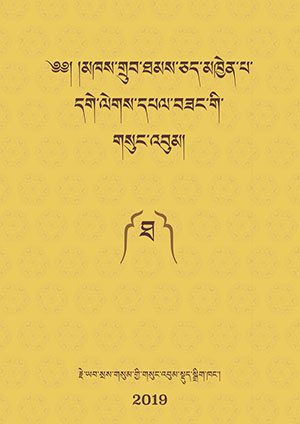 ༄༅། །མཁས་གྲུབ་ཐམས་ཅད་མཁྱེན་པ་
དགེ་ལེགས་དཔལ་བཟང་གི་
གསུང་འབུམ།
ཐ
རྗེ་ཡབ་སྲས་གསུམ་གྱི་གསུང་འབུམ་སྡུད་སྒྲིག་ཁང་།
2019